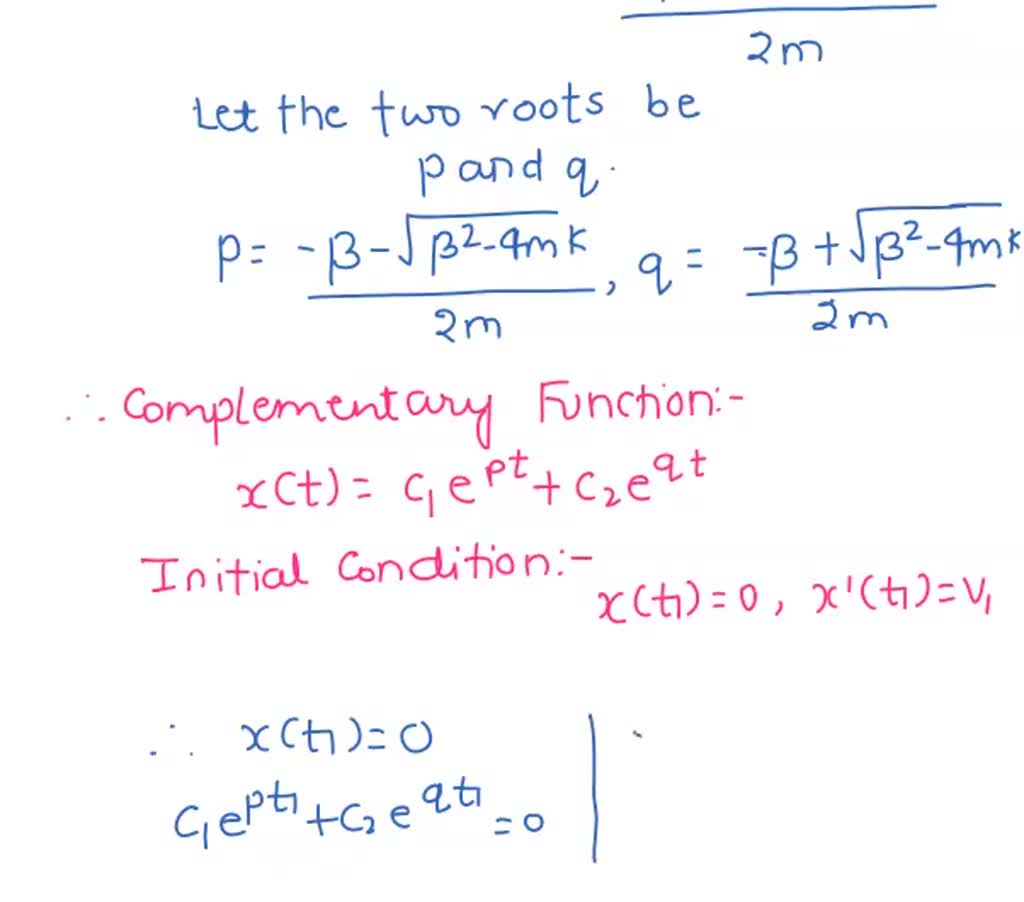 2m
Let the two roots be
p and q.
p = (-β - √(β² - 4mk)) / 2m, q = (-β + √(β² - 4mk)) / 2m
∴ Complementary Function:-
x(t) = c₁e^{pt} + c₂e^{qt}
Initial Condition:-
x(t₁) = 0, x'(t₁) = V₁
∴ x(t₁) = 0
c₁e^{pt₁} + c₂e^{qt₁} = 0